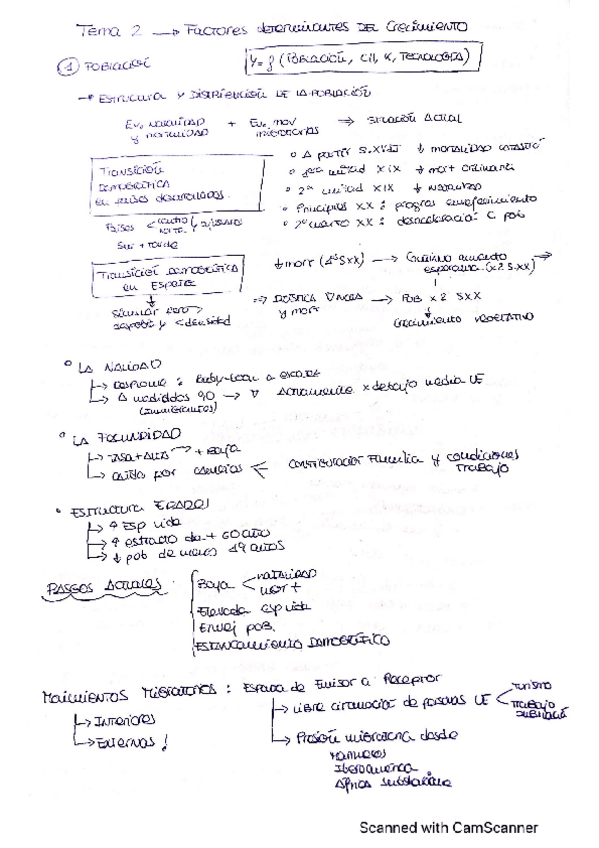 Tema 2 → Factores determinantes del Crecimiento
① Población
Y = f (Población, CH, K, Tecnología)
→ Estructura y distribución de la población
Ev. natalidad y mortalidad + Ev. mov migratorios ⇒ Situación Actual
Transición Demográfica en países desarrollados
Países
Sur + tarde
º A partir S.XVIII ↓ mortalidad
º 1era mitad XIX ↓ mort ordinaria
º 2ª mitad XIX ↓ natalidad
º Principios XX : progres envejecimiento
º cuarto XX : desaceleración C pob
Transición Demográfica en España
↓
Similar pero
y < densidad
↓ mort (S XX) → Continuo aumento esperanza (x2 S.XX)
⇒ y mort → Pob x 2 S XX
↓
Crecimiento vegetativo
º La Natalidad
↳ Desplome : Baby-boom a escasez
↳ A mediados 90 → (inmigrantes) Actualmente x debajo media UE
º La Fecundidad
↳ Tasa + alta → + baja
↳ Caída por < Configuración Familia y condiciones trabajo
º Estructura Edades
↳ ↑ Esp vida
↳ ↑ estracto de + 60 año
↳ ↓ pob de menos 19 años
Rasgos Actuales
Baja < natalidad mort
Elevada esp vida
Envej pob.
Estancamiento Demográfico
Movimientos Migratorios : España de Emisor a Receptor
↳ Interiores
↳ Externos !
↳ Libre circulación de personas UE < turismo trabajo jubilación
↳ Presión migratoria desde
Marruecos
Iberoamérica
África subsahariana
Scanned with CamScanner